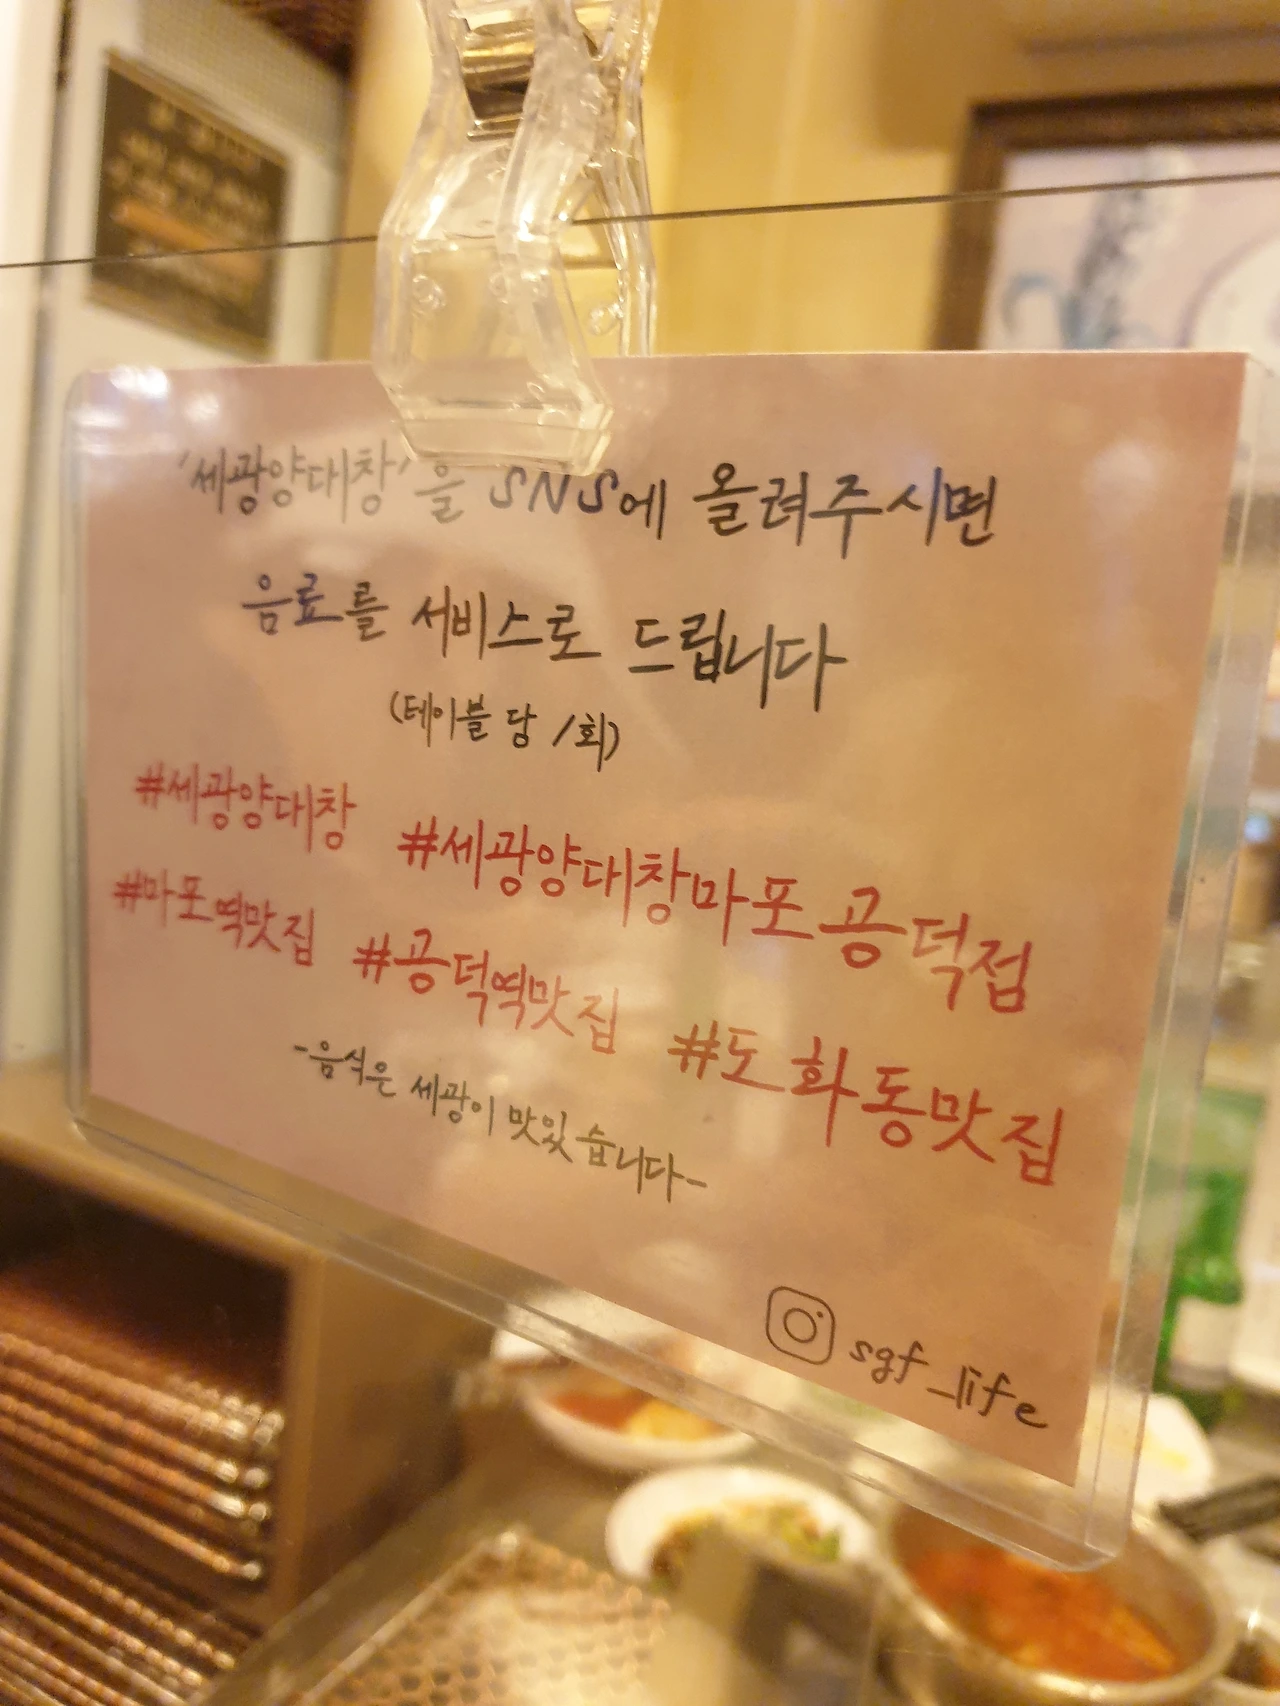 '세광양대창'을 SNS에 올려주시면
음료를 서비스로 드립니다
(테이블 당 1회)
#세광양대창 #세광양대창마포공덕점
#마포역맛집 #공덕역맛집 #도화동맛집
-음식은 세광이 맛있습니다-
sgf_life